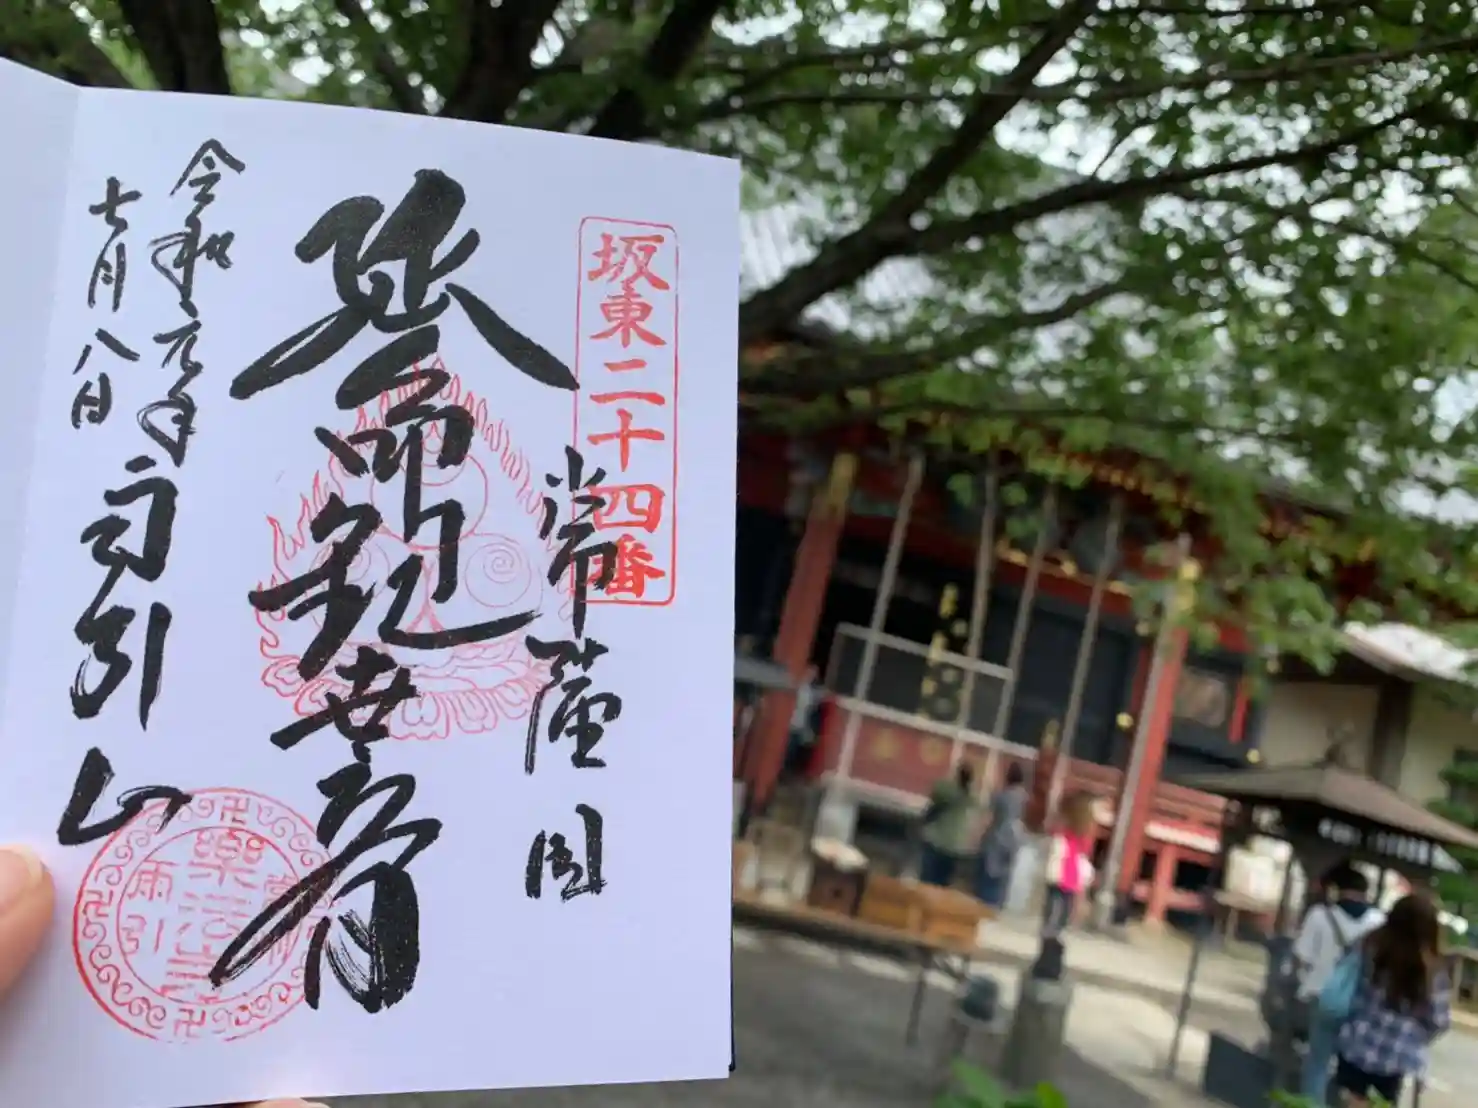 坂東二十四番
常陸国
延命観世音
令和元年
七月八日
雨引山
樂法寺
雨引